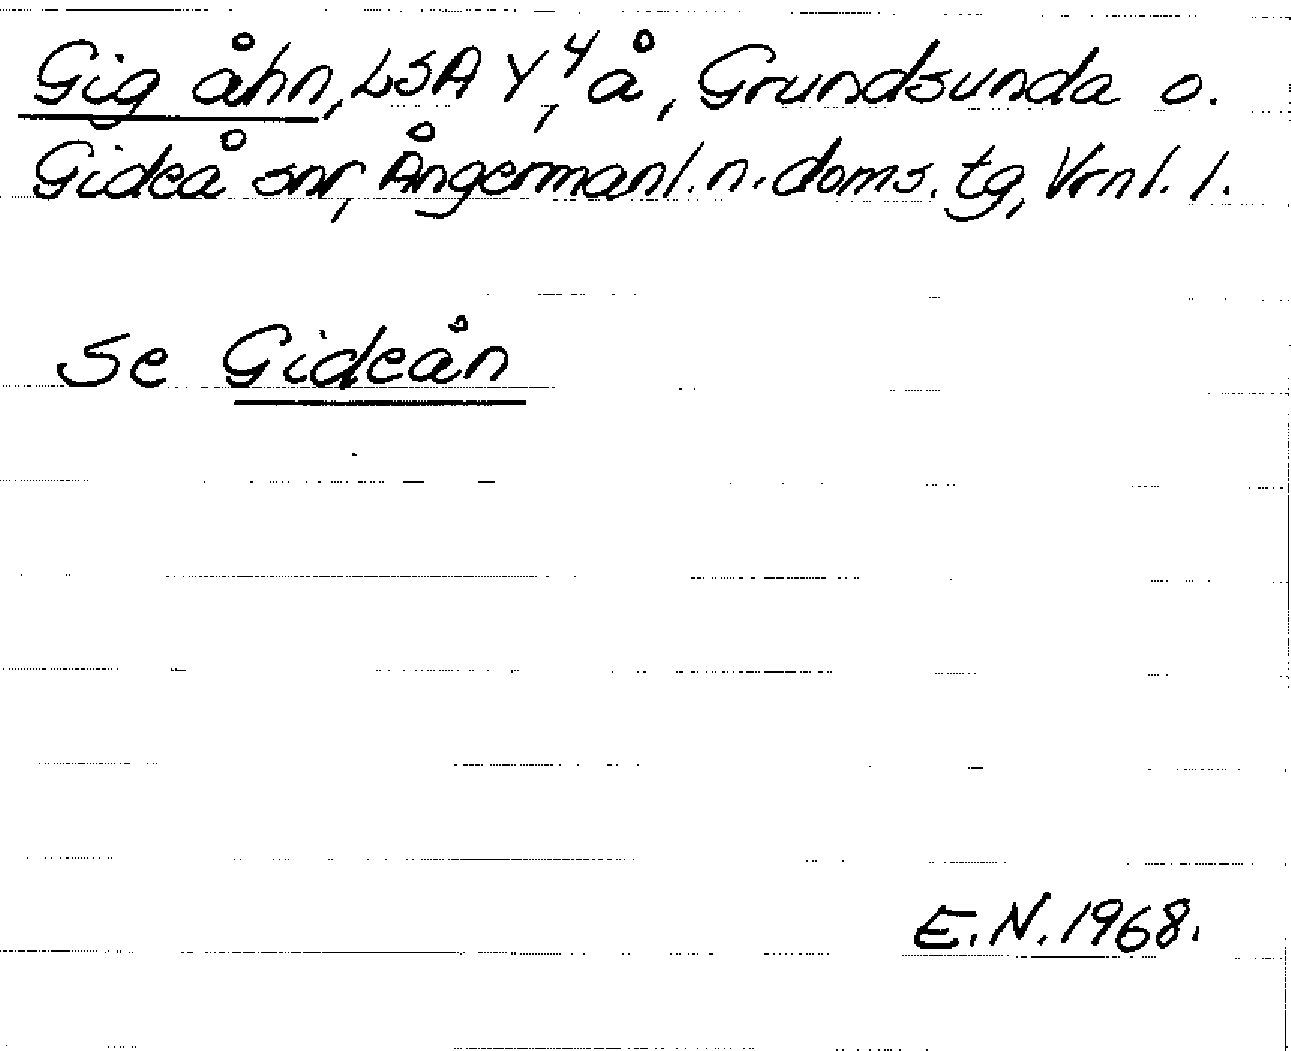 Gig åhn, LSA Y, 4 å, Grundsunda o.
Gideå snr, Ångermanl. n. doms. tg, Vrnl. l.
Se Gideån
E.N. 1968.